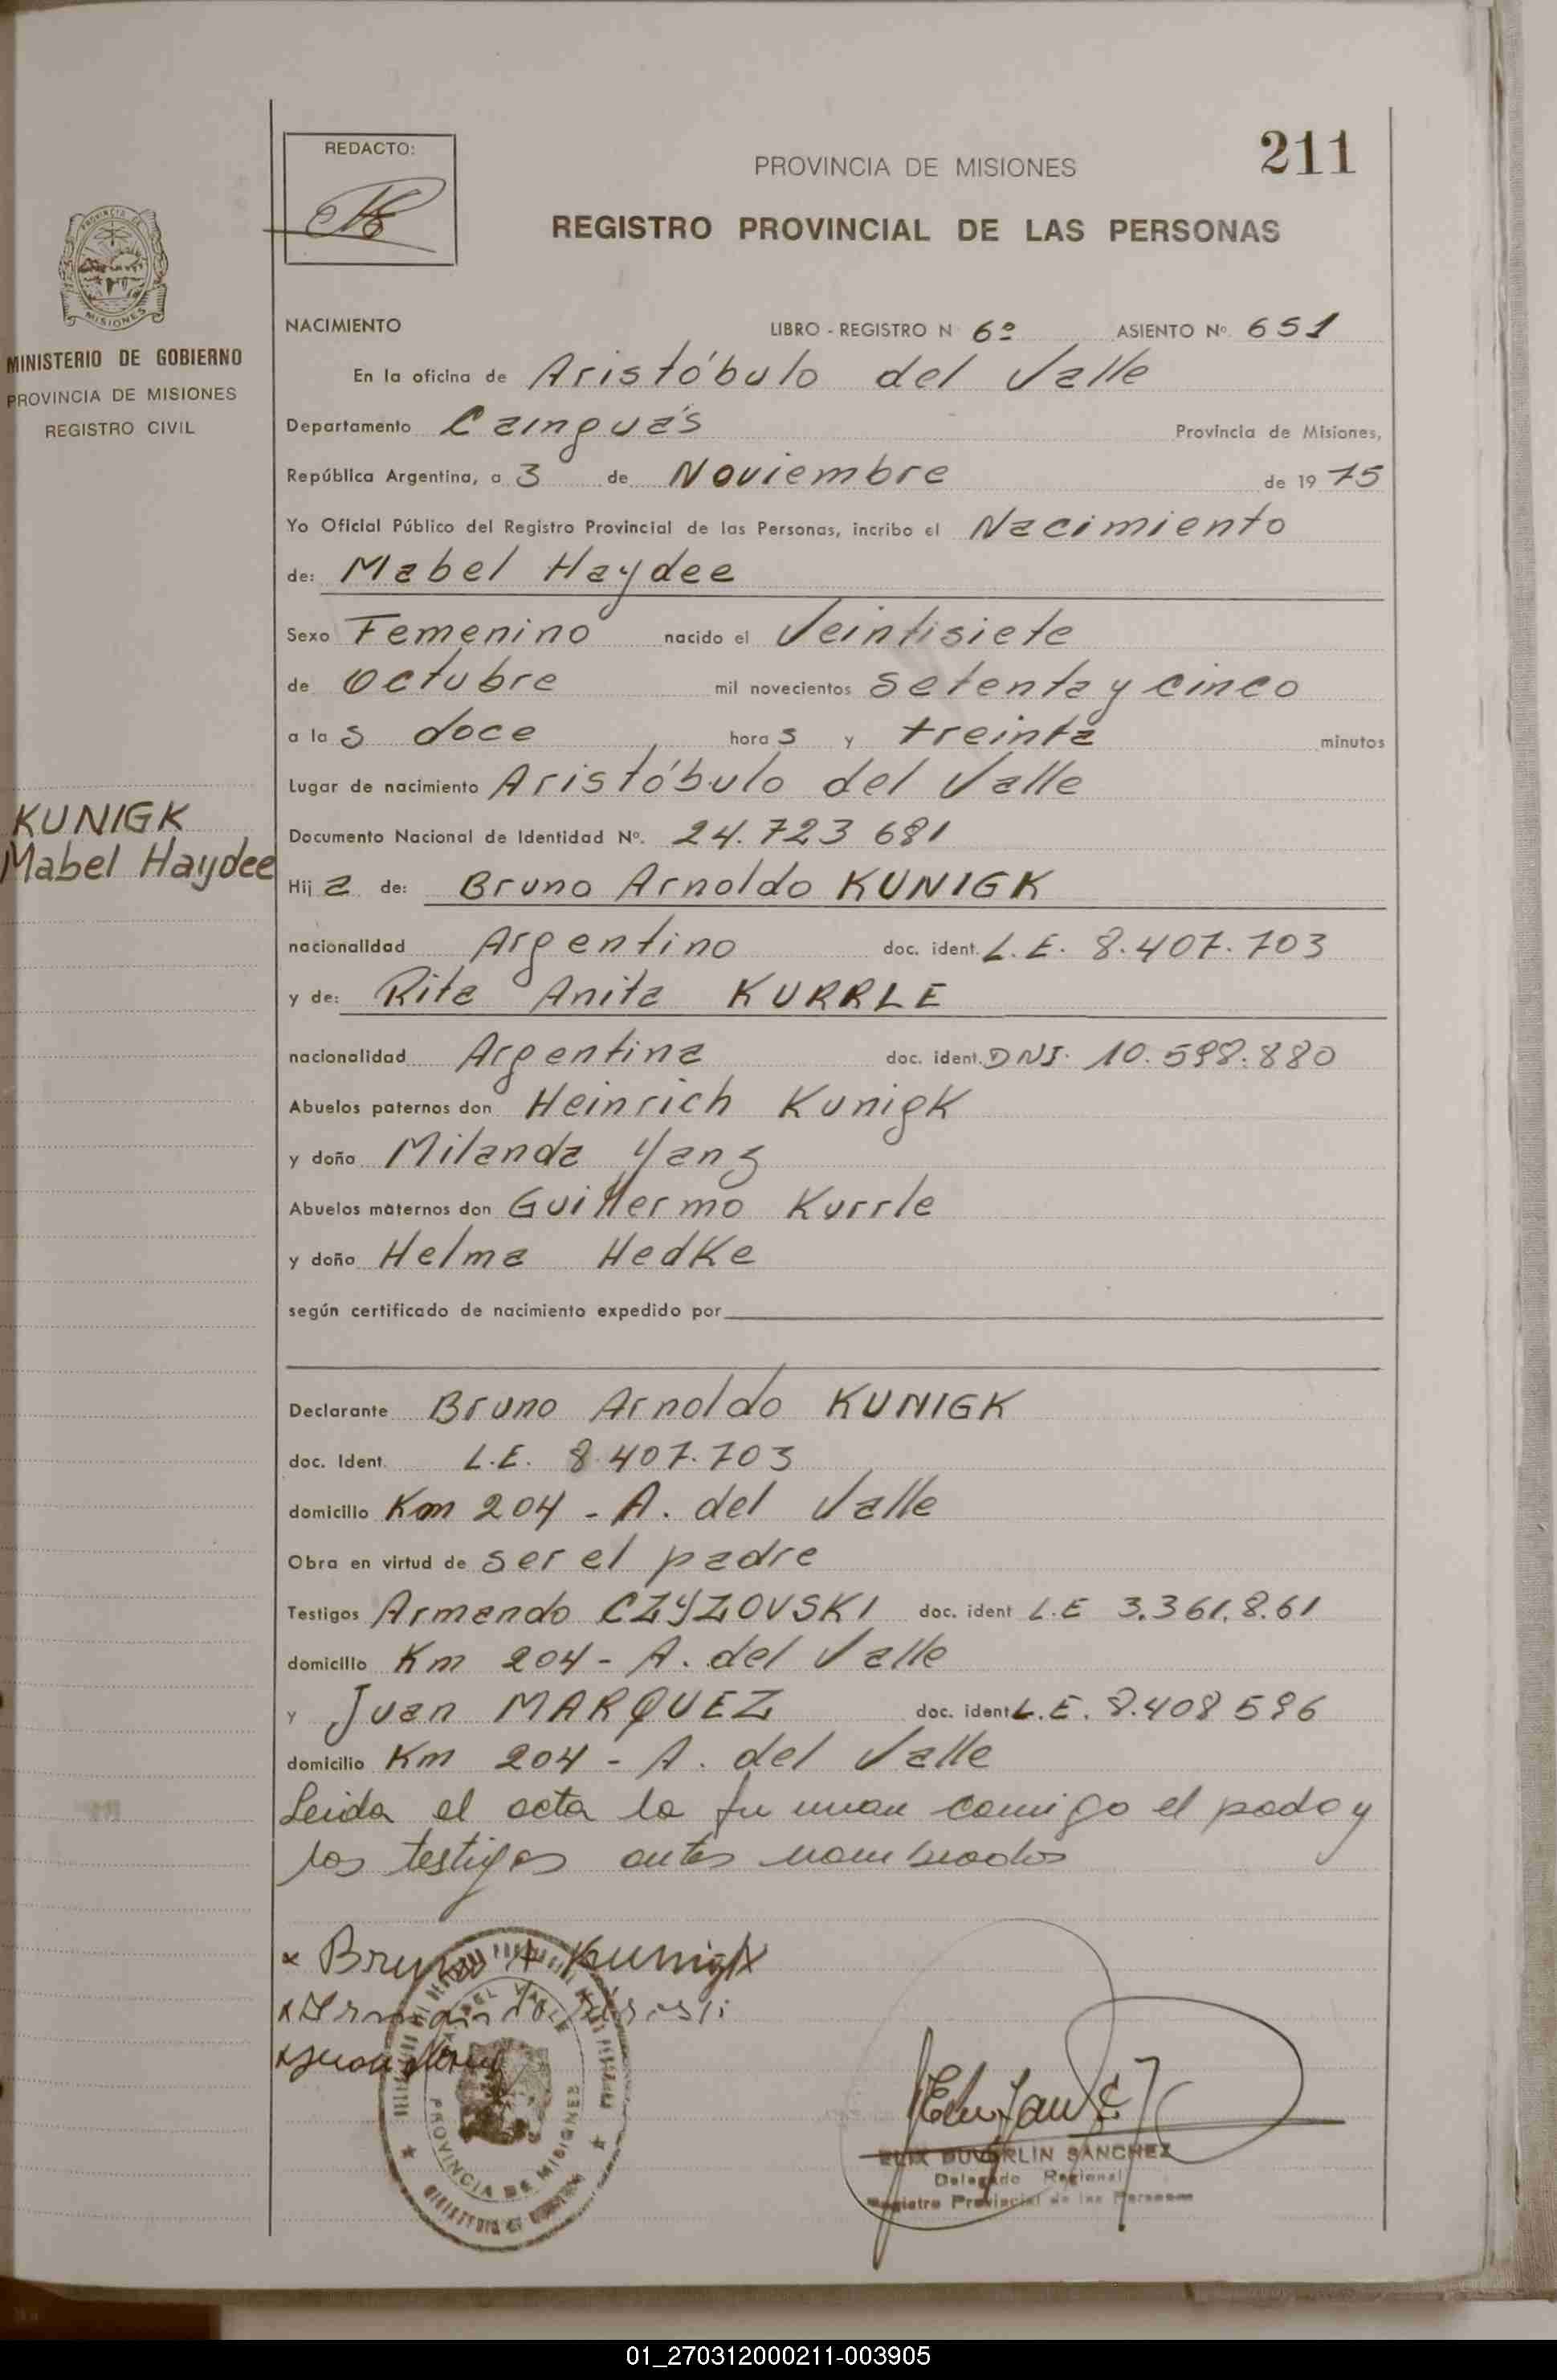 REDACTO:
PROVINCIA DE MISIONES
211
REGISTRO PROVINCIAL DE LAS PERSONAS
MISIONES
MINISTERIO DE GOBIERNO
PROVINCIA DE MISIONES
REGISTRO CIVIL
NACIMIENTO LIBRO - REGISTRO N 6º ASIENTO Nº 651
En la oficina de Aristóbulo del Valle
Departamento Cainguás Provincia de Misiones,
República Argentina, a 3 de Noviembre de 19 75
Yo Oficial Público del Registro Provincial de las Personas, incribo el Nacimiento
de: Mabel Haydee
Sexo Femenino nacido el Veintisiete
de Octubre mil novecientos setenta y cinco
a la s doce hora s y treinta minutos
Lugar de nacimiento Aristóbulo del Valle
KUNIGK
Mabel Haydee
Documento Nacional de Identidad Nº. 24.723 681
Hij a de: Bruno Arnoldo KUNIGK
nacionalidad Argentino doc. ident. L.E. 8.407.703
y de: Rita Anita KURRLE
nacionalidad Argentina doc. ident. DNI. 10.598.880
Abuelos paternos don Heinrich Kunigk
y doña Milanda Yanz
Abuelos maternos don Guillermo Kurrle
y doña Helma Hedke
según certificado de nacimiento expedido por
Declarante Bruno Arnoldo KUNIGK
doc. Ident. L.E. 8.407.703
domicilio Km 204 - A. del Valle
Obra en virtud de ser el padre
Testigos Armando CZYZOVSKI doc. ident L.E 3.361.8.61
domicilio Km 204 - A. del Valle
y Juan MARQUEZ doc. ident L.E. 8.408 596
domicilio Km 204 - A. del Valle
Leida el acta la firman comigo el padre y
los testigos antes nombrados
x Bruno A Kunigk
DEL VALLE
PROVINCIA DE MISIONES
DUVERLIN SANCHEZ
Delegado Regional
Registro Provincial de las Personas
01_270312000211-003905